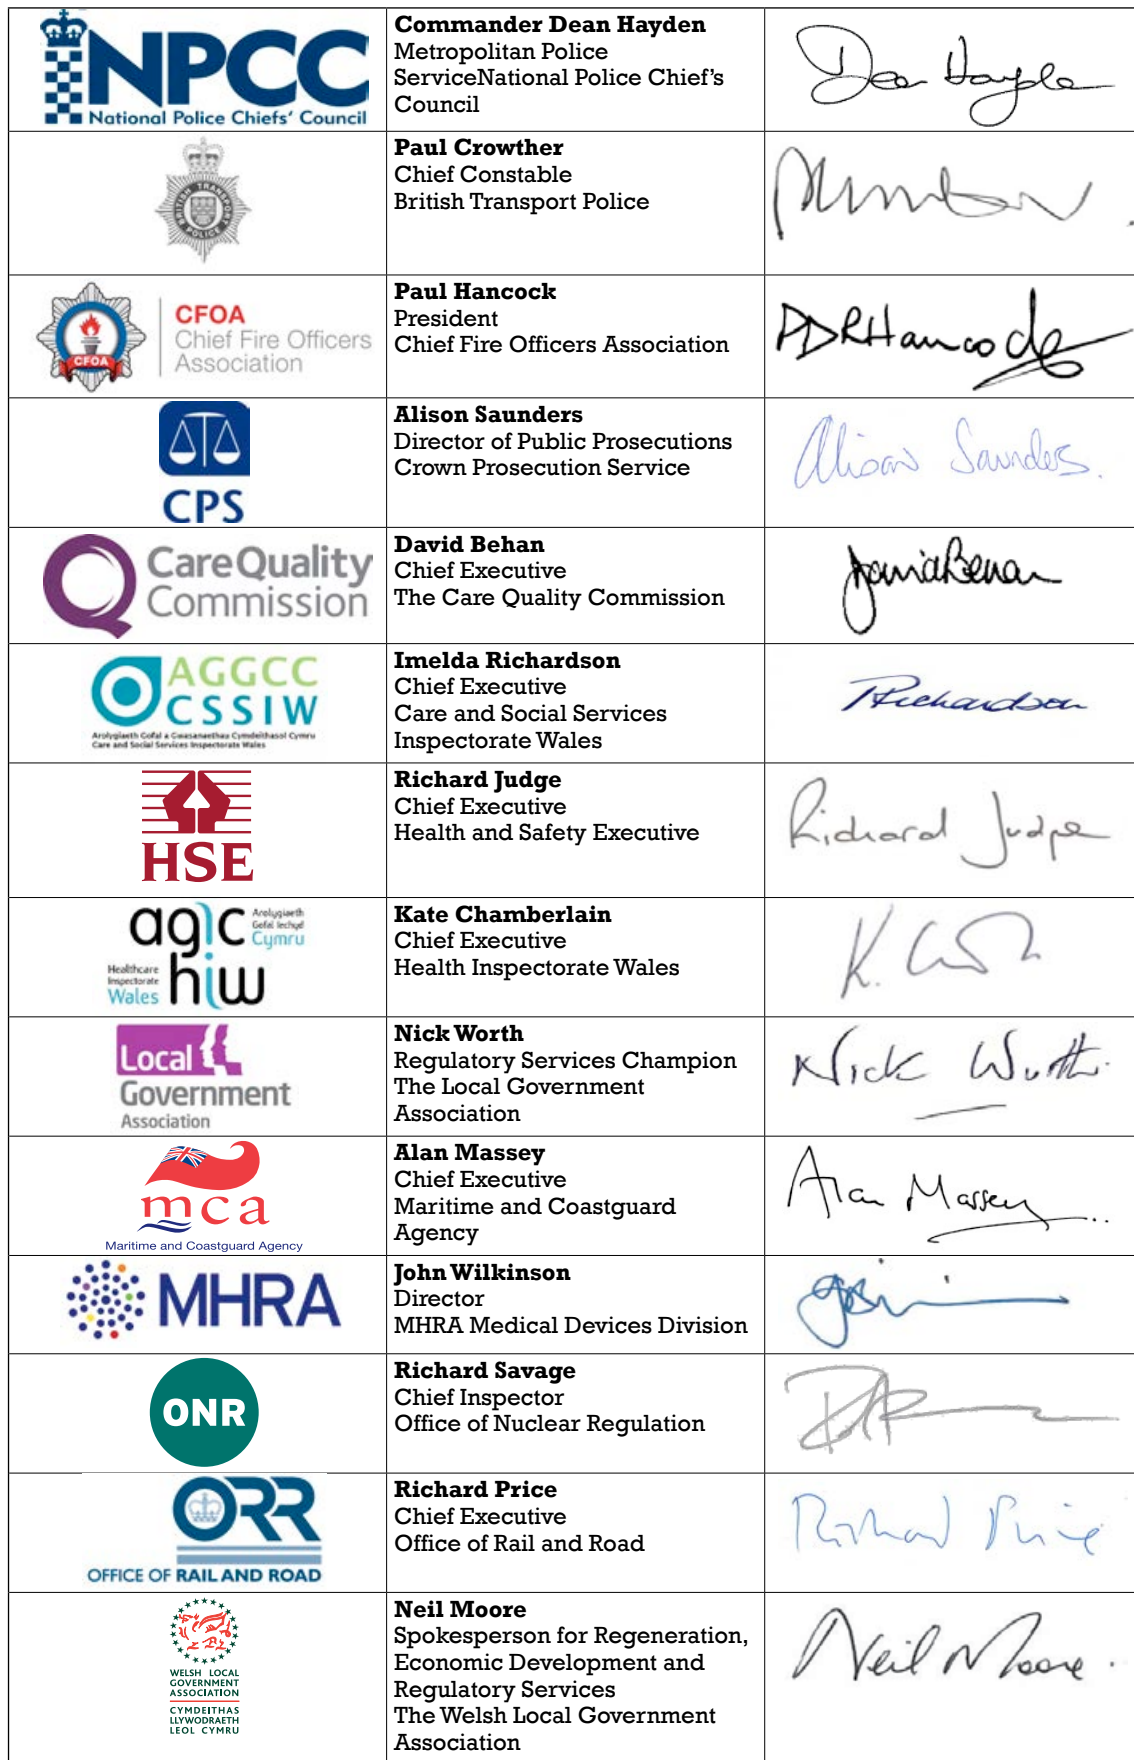 NPCC
National Police Chiefs' Council
Commander Dean Hayden
Metropolitan Police
ServiceNational Police Chief's
Council
BRITISH TRANSPORT POLICE
Paul Crowther
Chief Constable
British Transport Police
CFOA
CFOA
Chief Fire Officers
Association
Paul Hancock
President
Chief Fire Officers Association
PDRHancock
CPS
Alison Saunders
Director of Public Prosecutions
Crown Prosecution Service
Alison Saunders.
CareQuality
Commission
David Behan
Chief Executive
The Care Quality Commission
David Behan
AGGCC
CSSIW
Arolygiaeth Gofal a Gwasanaethau Cymdeithasol Cymru
Care and Social Services Inspectorate Wales
Imelda Richardson
Chief Executive
Care and Social Services
Inspectorate Wales
Richardson
HSE
Richard Judge
Chief Executive
Health and Safety Executive
Richard Judge
agic
Arolygiaeth
Gofal Iechyd
Cymru
Healthcare
Inspectorate
Wales
hiw
Kate Chamberlain
Chief Executive
Health Inspectorate Wales
Local
Government
Association
Nick Worth
Regulatory Services Champion
The Local Government
Association
Nick Worth
mca
Maritime and Coastguard Agency
Alan Massey
Chief Executive
Maritime and Coastguard
Agency
Alan Massey
MHRA
John Wilkinson
Director
MHRA Medical Devices Division
ONR
Richard Savage
Chief Inspector
Office of Nuclear Regulation
ORR
OFFICE OF RAIL AND ROAD
Richard Price
Chief Executive
Office of Rail and Road
Richard Price
WELSH LOCAL
GOVERNMENT
ASSOCIATION
CYMDEITHAS
LLYWODRAETH
LEOL CYMRU
Neil Moore
Spokesperson for Regeneration,
Economic Development and
Regulatory Services
The Welsh Local Government
Association
Neil Moore.